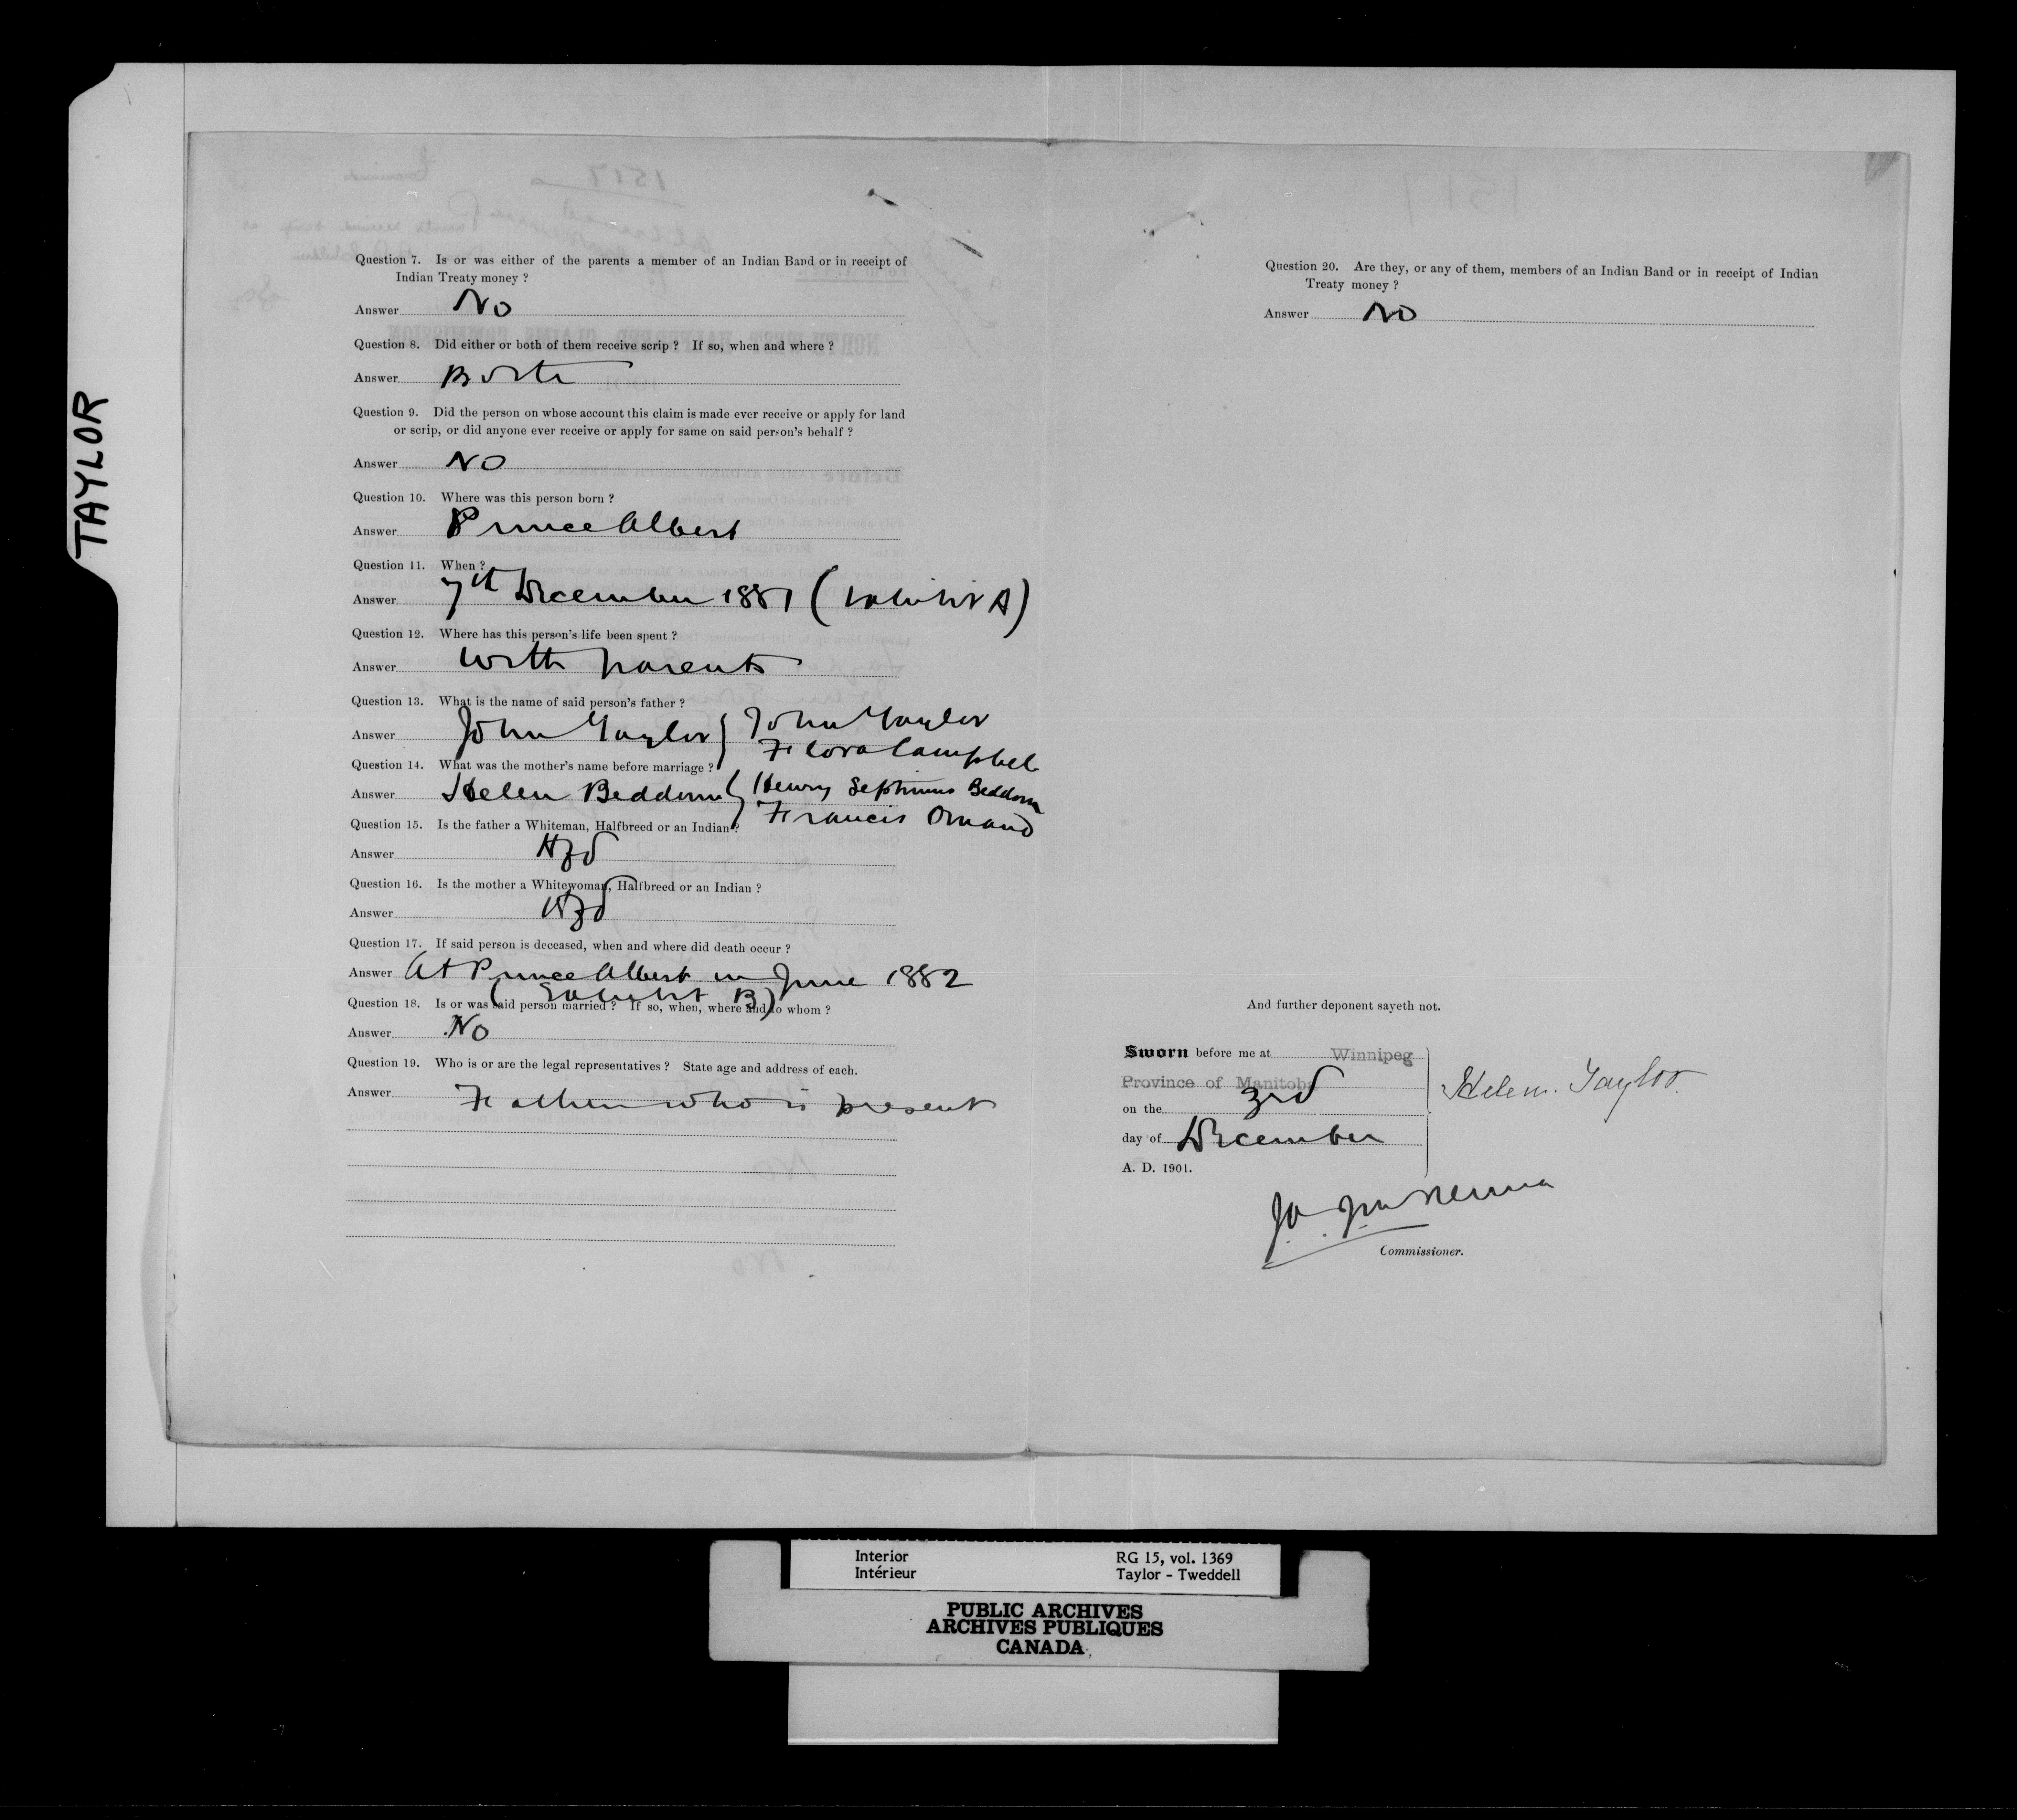 TAYLOR
Question 7. Is or was either of the parents a member of an Indian Band or in receipt of
Indian Treaty money ?
Answer No
Question 8. Did either or both of them receive scrip ? If so, when and where ?
Answer Both
Question 9. Did the person on whose account this claim is made ever receive or apply for land
or scrip, or did anyone ever receive or apply for same on said person's behalf ?
Answer No
Question 10. Where was this person born ?
Answer Prince Albert
Question 11. When ?
Answer 7th December 1881 (Exhibit A)
Question 12. Where has this person's life been spent ?
Answer With parents
Question 13. What is the name of said person's father ?
Answer John Taylor } John Taylor
Flora Campbell
Question 14. What was the mother's name before marriage ?
Answer Helen Beddome } Henry Septimus Beddome
Francis Omand
Question 15. Is the father a Whiteman, Halfbreed or an Indian ?
Answer Hfd
Question 16. Is the mother a Whitewoman, Halfbreed or an Indian ?
Answer Hfd
Question 17. If said person is deceased, when and where did death occur ?
Answer At Prince Albert in June 1882
(Exhibit B)
Question 18. Is or was said person married ? If so, when, where and to whom ?
Answer No
Question 19. Who is or are the legal representatives ? State age and address of each.
Answer Father who is present
Question 20. Are they, or any of them, members of an Indian Band or in receipt of Indian
Treaty money ?
Answer No
And further deponent sayeth not.
Sworn before me at Winnipeg
Province of Manitoba
on the 3rd
day of December
A. D. 1901.
Helen. Taylor.
Commissioner.
Interior
Intérieur
RG 15, vol. 1369
Taylor - Tweddell
PUBLIC ARCHIVES
ARCHIVES PUBLIQUES
CANADA